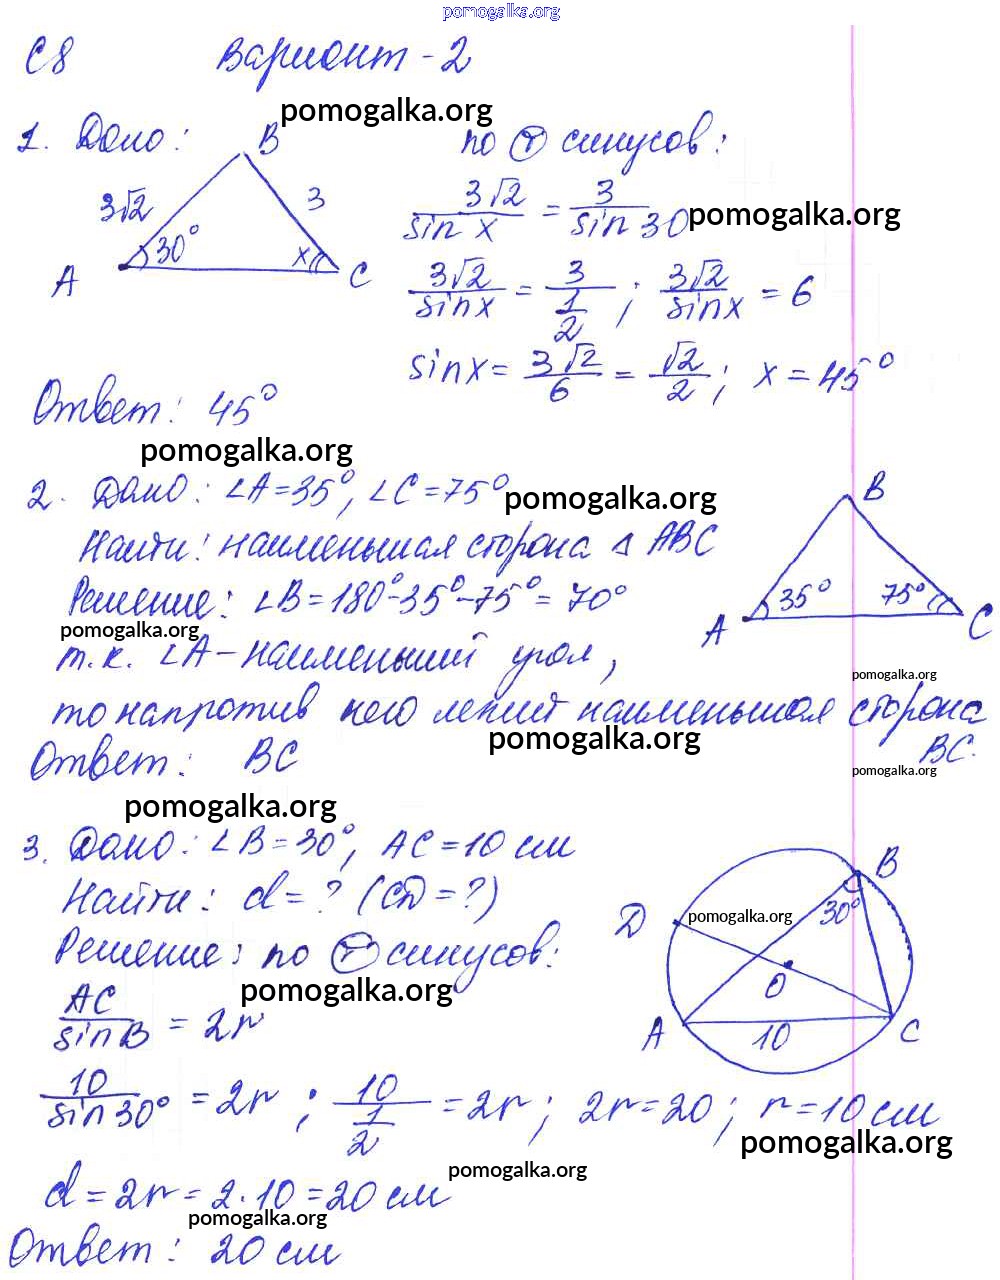 pomogalka.org
С8 Вариант - 2
pomogalka.org
1. Дано: B по Ⓣ синусов:
3√2 3
30° x
A C
3√2/sin x = 3/sin 30 pomogalka.org
3√2/sin x = 3/(1/2) ; 3√2/sin x = 6
sin x = 3√2/6 = √2/2 ; x = 45°
Ответ: 45°
pomogalka.org
2. Дано: ∠A = 35°, ∠C = 75° pomogalka.org
B
Найти: наименьшая сторона Δ ABC
35° 75°
A C
Решение: ∠B = 180° - 35° - 75° = 70°
pomogalka.org
т.к. ∠A - наименьший угол,
pomogalka.org
то напротив него лежит наименьшая сторона
BC.
pomogalka.org
pomogalka.org
Ответ: BC
pomogalka.org
3. Дано: ∠B = 30°, AC = 10 см
B
Найти: d = ? (CD = ?)
D pomogalka.org 30°
Решение: по Ⓣ синусов:
pomogalka.org
O
A 10 C
AC/sin B = 2r
10/sin 30° = 2r ; 10/(1/2) = 2r ; 2r = 20 ; r = 10 см
pomogalka.org
pomogalka.org
d = 2r = 2 · 10 = 20 см
pomogalka.org
Ответ: 20 см